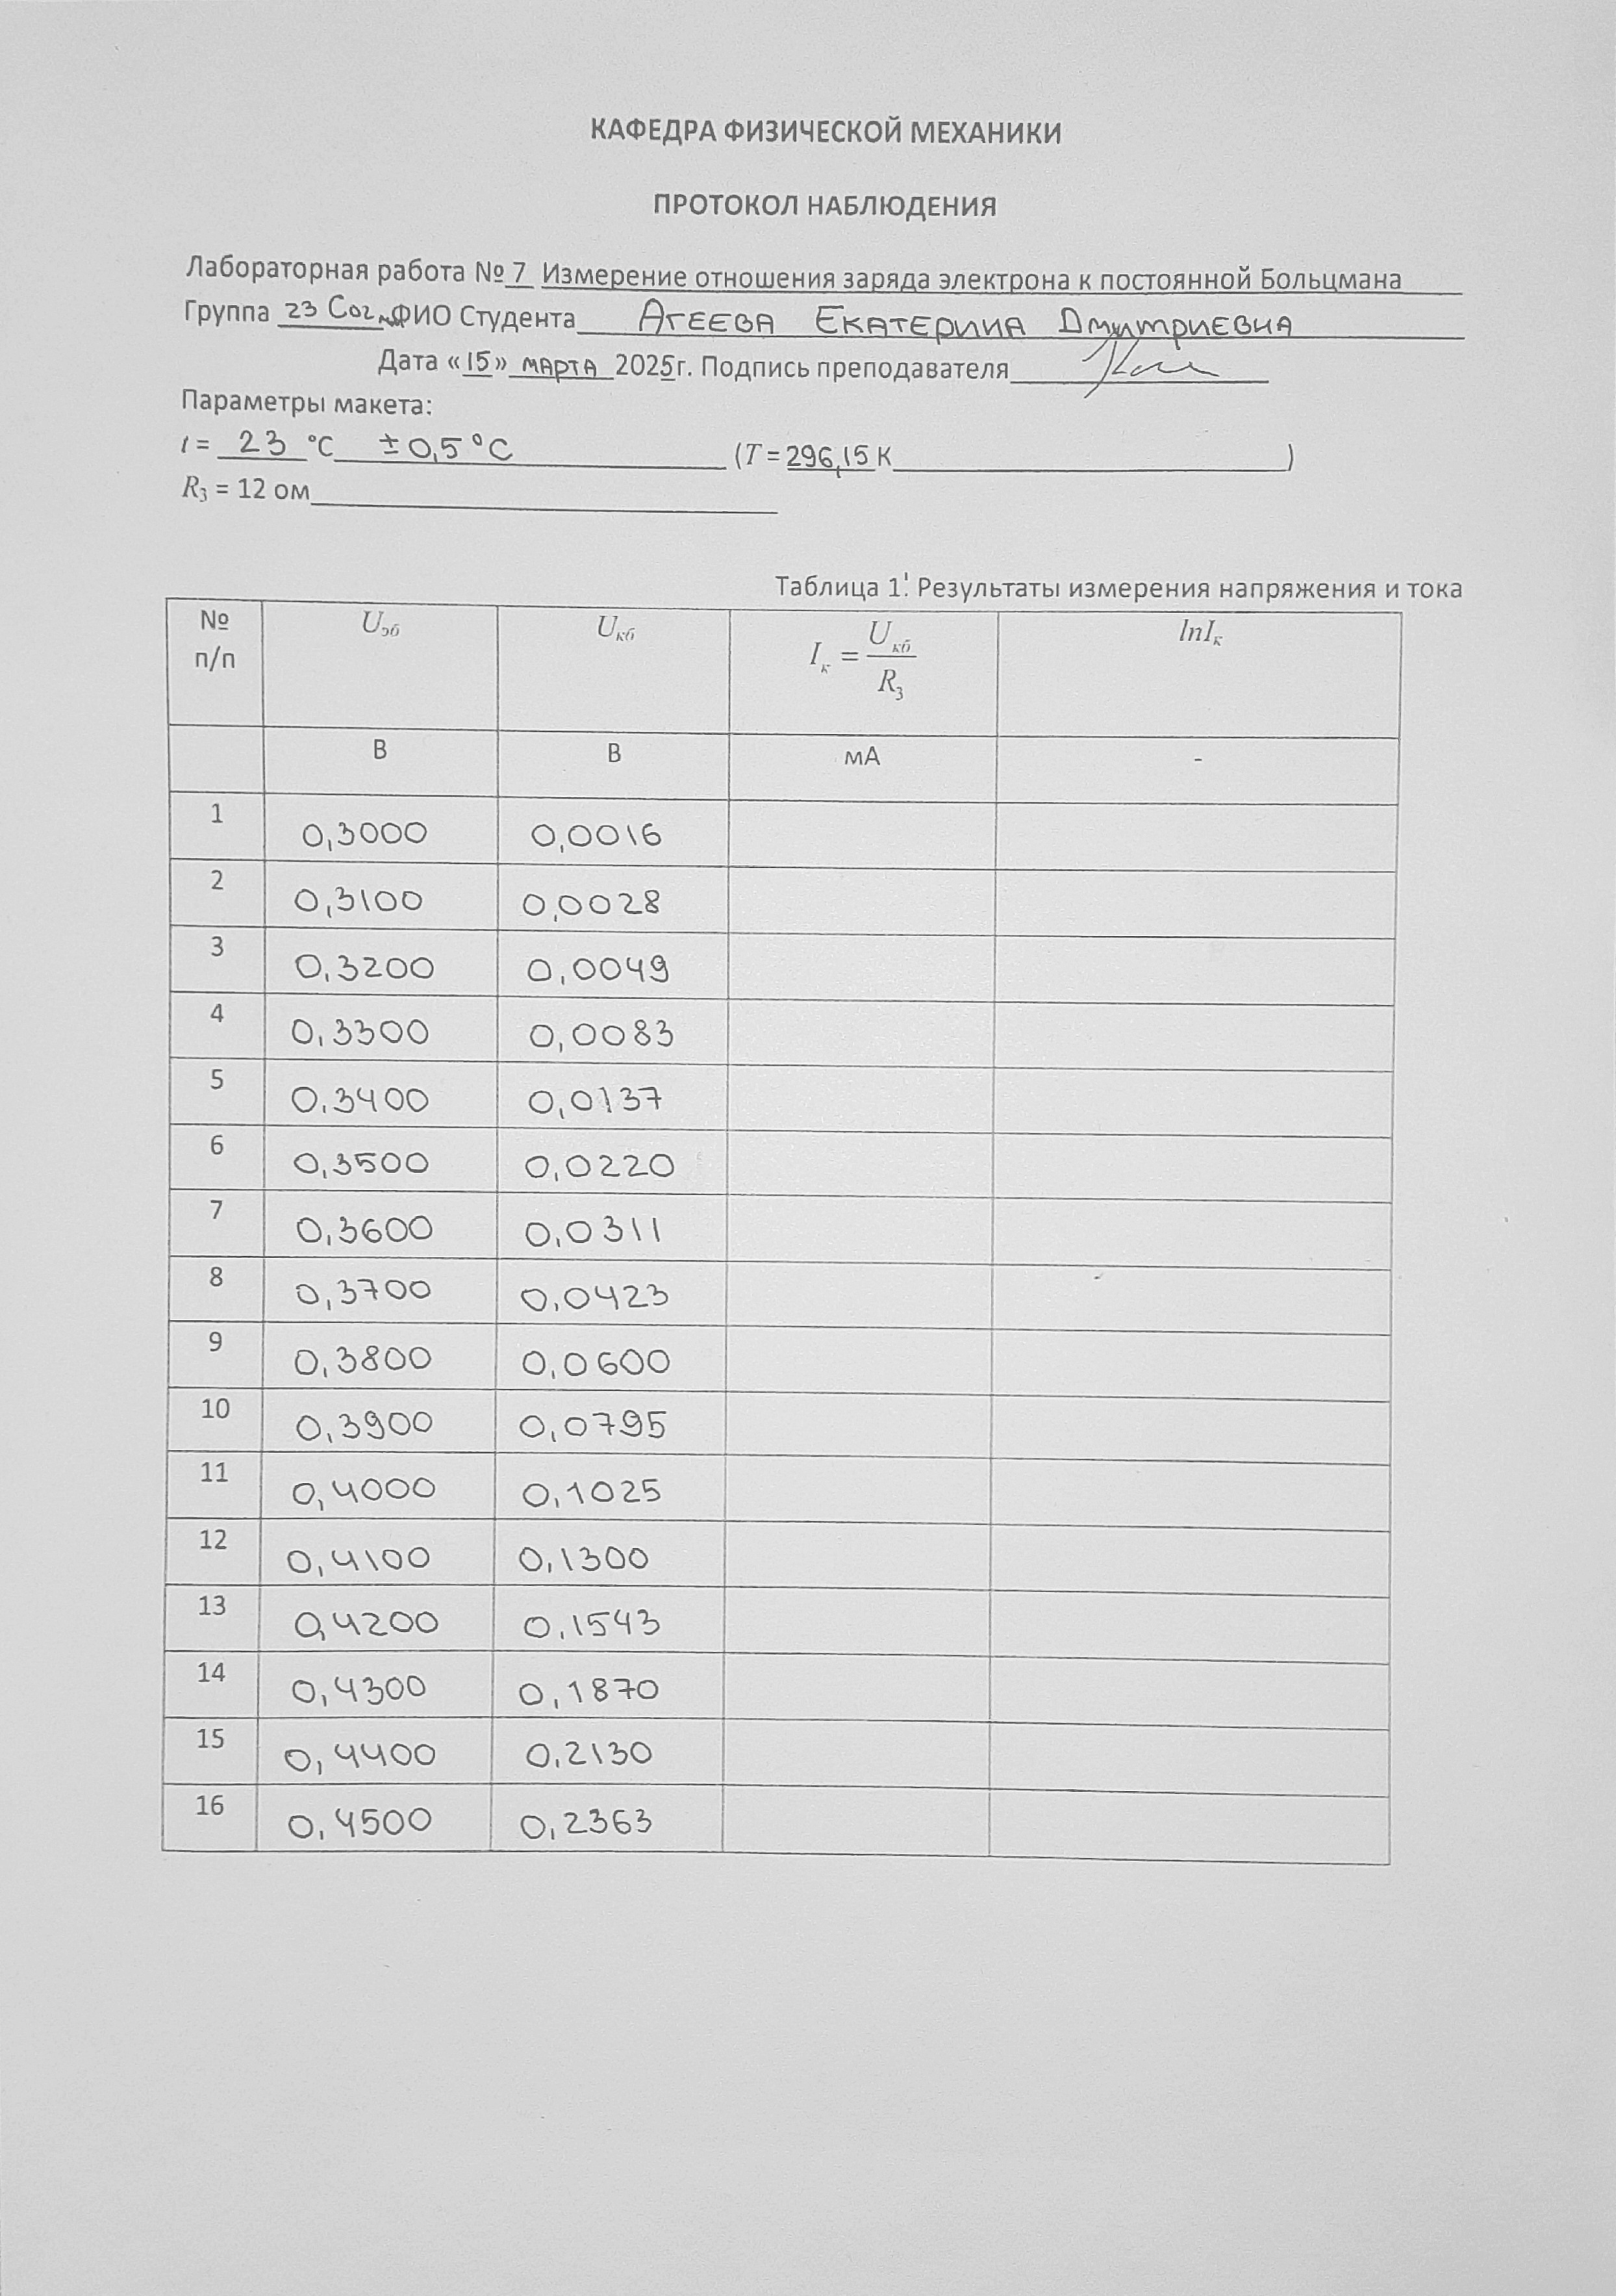 КАФЕДРА ФИЗИЧЕСКОЙ МЕХАНИКИ
ПРОТОКОЛ НАБЛЮДЕНИЯ
Лабораторная работа № 7 Измерение отношения заряда электрона к постоянной Больцмана
Группа 23 ФИО Студента АГЕЕВА ЕКАТЕРИНА ДМИТРИЕВНА
Дата «15» МАРТА 2025г. Подпись преподавателя
Параметры макета:
t = 23 °C ±0,5°C (T = 296,15 К )
R₃ = 12 ом
Таблица 1. Результаты измерения напряжения и тока
№ п/п Uэб Uкб Iк = Uкб / R₃ lnIк
В В мА -
1 0,3000 0,0016
2 0,3100 0,0028
3 0,3200 0,0049
4 0,3300 0,0083
5 0,3400 0,0137
6 0,3500 0,0220
7 0,3600 0,0311
8 0,3700 0,0423
9 0,3800 0,0600
10 0,3900 0,0795
11 0,4000 0,1025
12 0,4100 0,1300
13 0,4200 0,1543
14 0,4300 0,1870
15 0,4400 0,2130
16 0,4500 0,2363